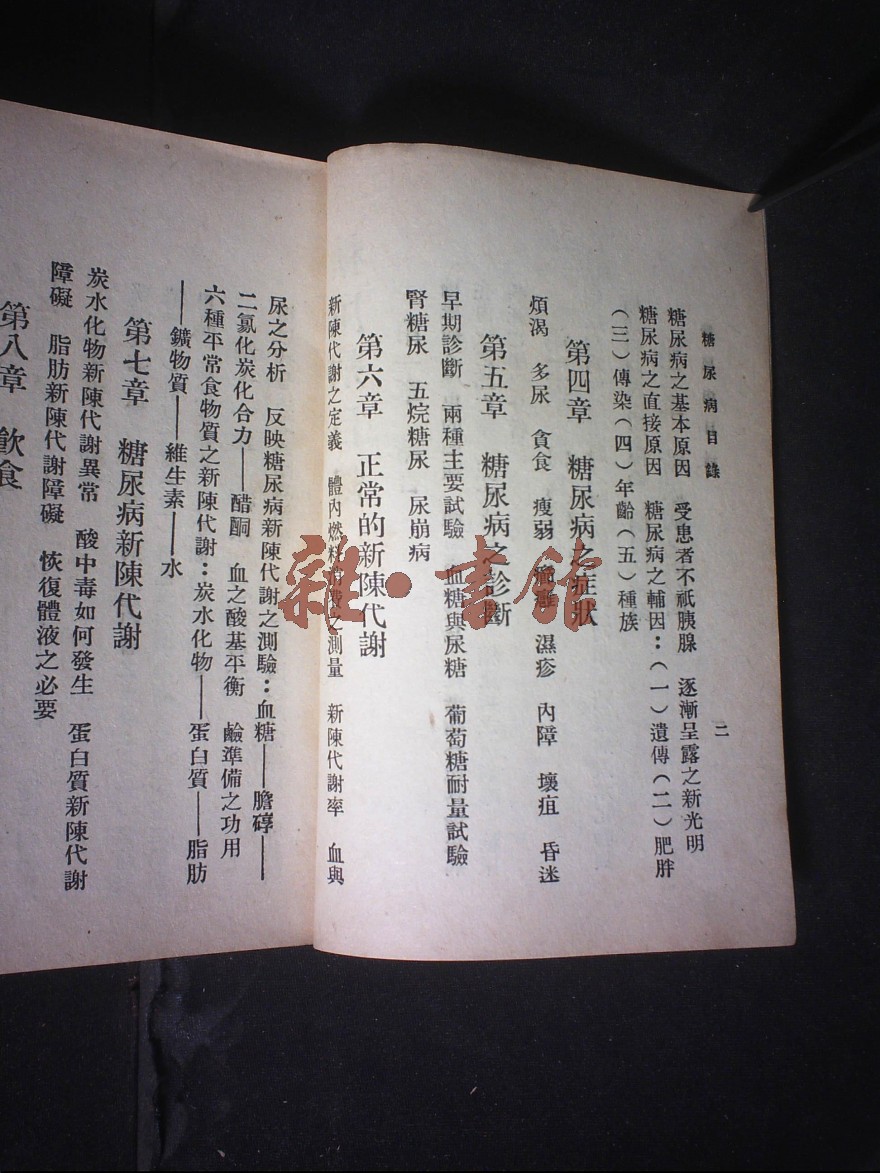 糖尿病目錄
二
糖尿病之基本原因　受患者不祇胰腺　逐漸呈露之新光明
糖尿病之直接原因　糖尿病之輔因：（一）遺傳（二）肥胖
（三）傳染（四）年齡（五）種族
第四章　糖尿病之症狀
煩渴　多尿　貪食　瘦弱　濕疹　內障　壞疽　昏迷
第五章　糖尿病之診斷
早期診斷　兩種主要試驗　血糖與尿糖　葡萄糖耐量試驗
腎糖尿　五烷糖尿　尿崩病
第六章　正常的新陳代謝
新陳代謝之定義　體內燃料消費之測量　新陳代謝率　血與
尿之分析　反映糖尿病新陳代謝之測驗：血糖——膽𥔲——
二氯化炭化合力——醋酮　血之酸基平衡　鹼準備之功用
六種平常食物質之新陳代謝：炭水化物——蛋白質——脂肪
——鑛物質——維生素——水
第七章　糖尿病新陳代謝
炭水化物新陳代謝異常　酸中毒如何發生　蛋白質新陳代謝
障礙　脂肪新陳代謝障礙　恢復體液之必要
第八章　飲食
雜·書館